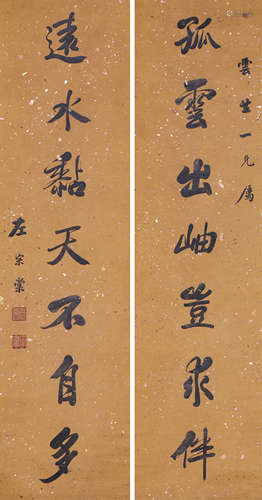 雲生一兄屬
孤雲出岫豈求伴
遠水黏天不自多
左宗棠